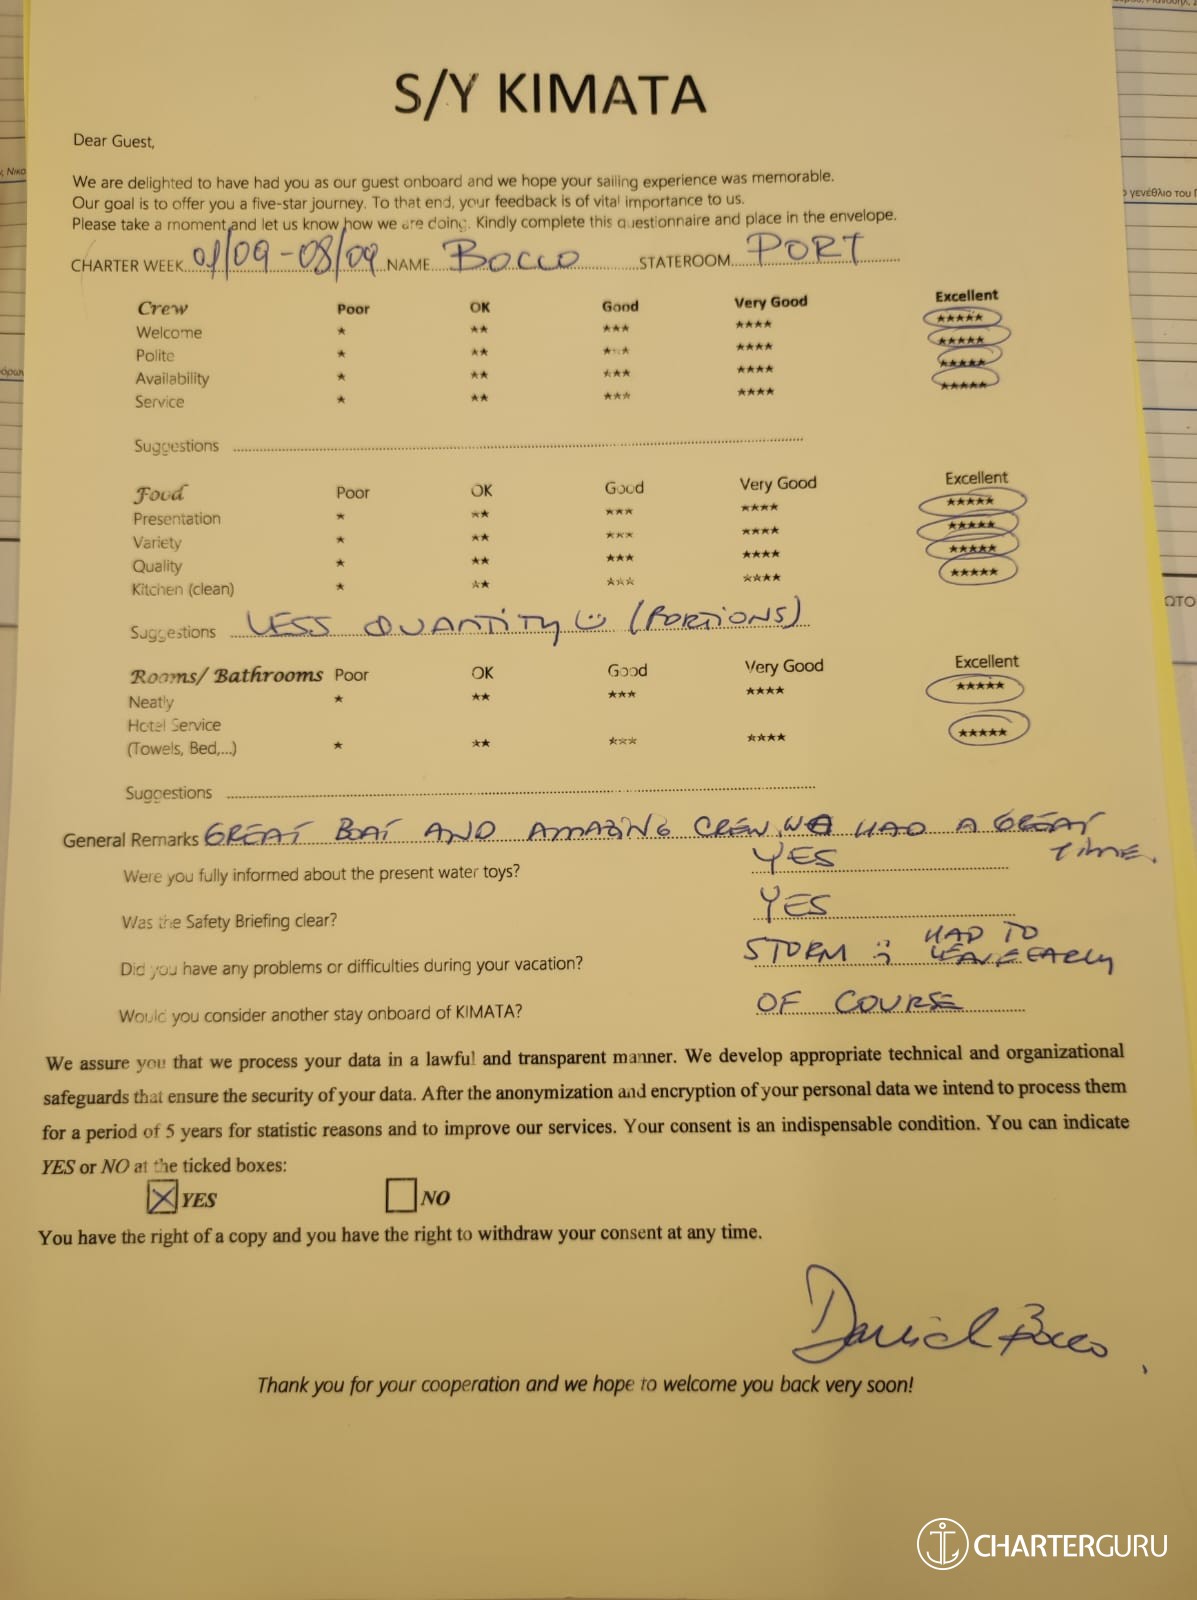 S/Y KIMATA
Dear Guest,
We are delighted to have had you as our guest onboard and we hope your sailing experience was memorable.
Our goal is to offer you a five-star journey. To that end, your feedback is of vital importance to us.
Please take a moment and let us know how we are doing. Kindly complete this questionnaire and place in the envelope.
CHARTER WEEK 01/09-08/09 NAME BOCCO STATEROOM PORT
Crew Poor OK Good Very Good Excellent
Welcome * ** *** **** *****
Polite * ** *** **** *****
Availability * ** *** **** *****
Service * ** *** **** *****
Suggestions
Food Poor OK Good Very Good Excellent
Presentation * ** *** **** *****
Variety * ** *** **** *****
Quality * ** *** **** *****
Kitchen (clean) * ** *** **** *****
Suggestions LESS QUANTITY (PORTIONS)
Rooms/ Bathrooms Poor OK Good Very Good Excellent
Neatly * ** *** **** *****
Hotel Service
(Towels, Bed,...) * ** *** **** *****
Suggestions
General Remarks GREAT BOAT AND AMAZING CREW. WE HAD A GREAT
TIME.
Were you fully informed about the present water toys? YES
Was the Safety Briefing clear? YES
Did you have any problems or difficulties during your vacation? STORM :( HAD TO
LEAVE EARLY
Would you consider another stay onboard of KIMATA? OF COURSE
We assure you that we process your data in a lawful and transparent manner. We develop appropriate technical and organizational
safeguards that ensure the security of your data. After the anonymization and encryption of your personal data we intend to process them
for a period of 5 years for statistic reasons and to improve our services. Your consent is an indispensable condition. You can indicate
YES or NO at the ticked boxes:
YES NO
You have the right of a copy and you have the right to withdraw your consent at any time.
Daniel Bocco
Thank you for your cooperation and we hope to welcome you back very soon!
CHARTERGURU